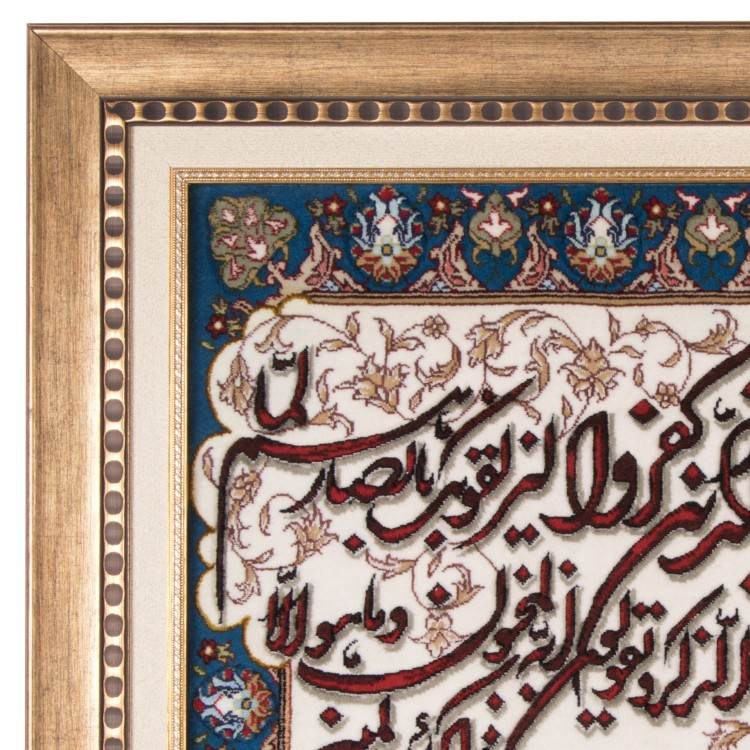 كفروا ليزلقونك بأبصارهم لما
الذكر ويقولون إنه لمجنون وما هو إلا